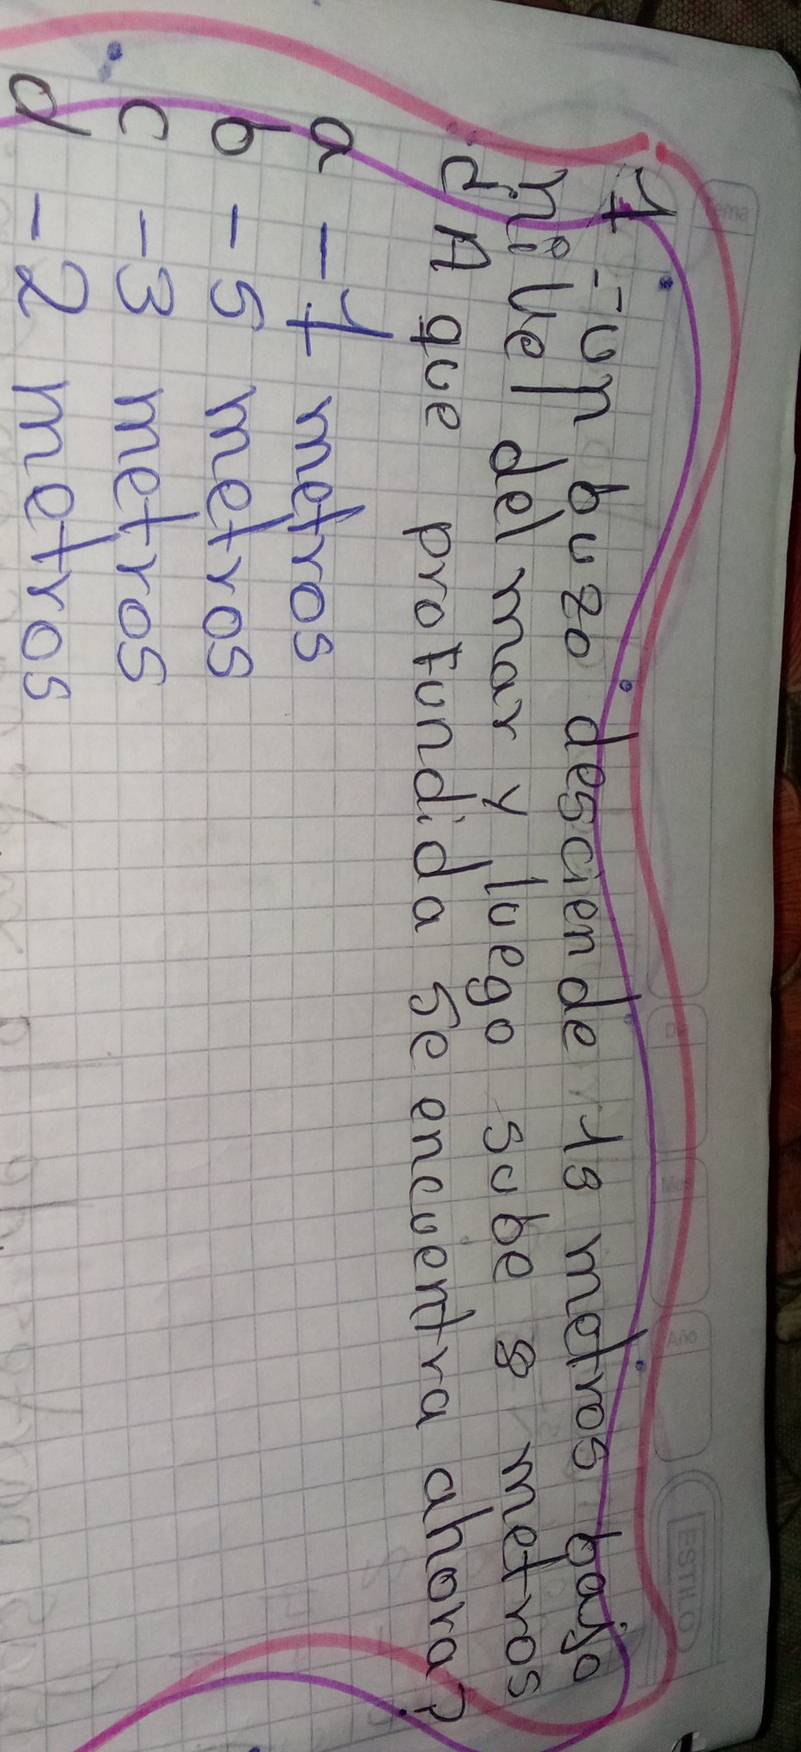 Tema
Día
Mes
Año
ESTILO
1 - un buzo desciende 15 metros bajo
nivel del mar y luego sube 8 metros
¿A que profundida se encuentra ahora?
a -1 metros
b -5 metros
c -3 metros
d -2 metros